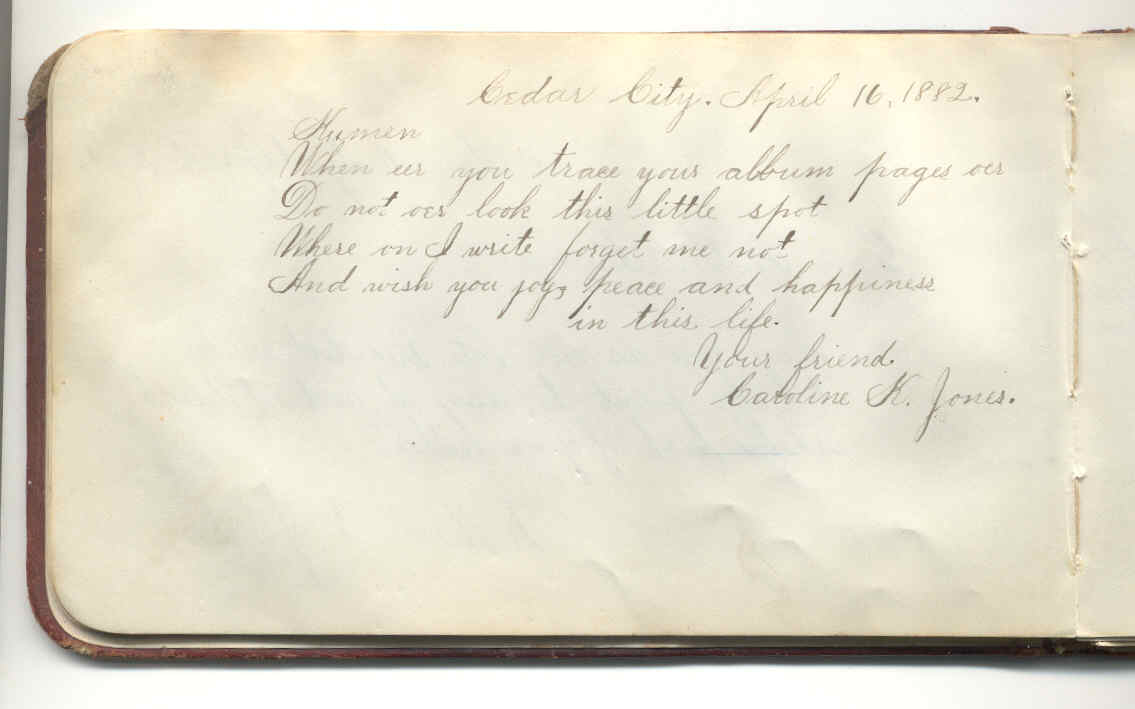 Cedar City. April 16, 1882.
Humen
When eer you trace your album pages oer
Do not oer look this little spot
Where on I write forget me not
And wish you joy, peace and happiness
in this life.
Your friend.
Caroline K. Jones.